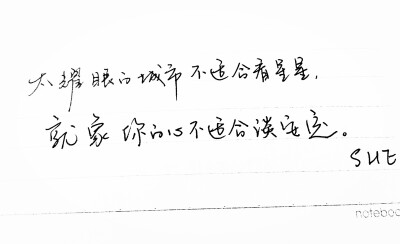 太耀眼的城市不适合看星星，
就象你的心不适合谈安定。
SHE
notebook